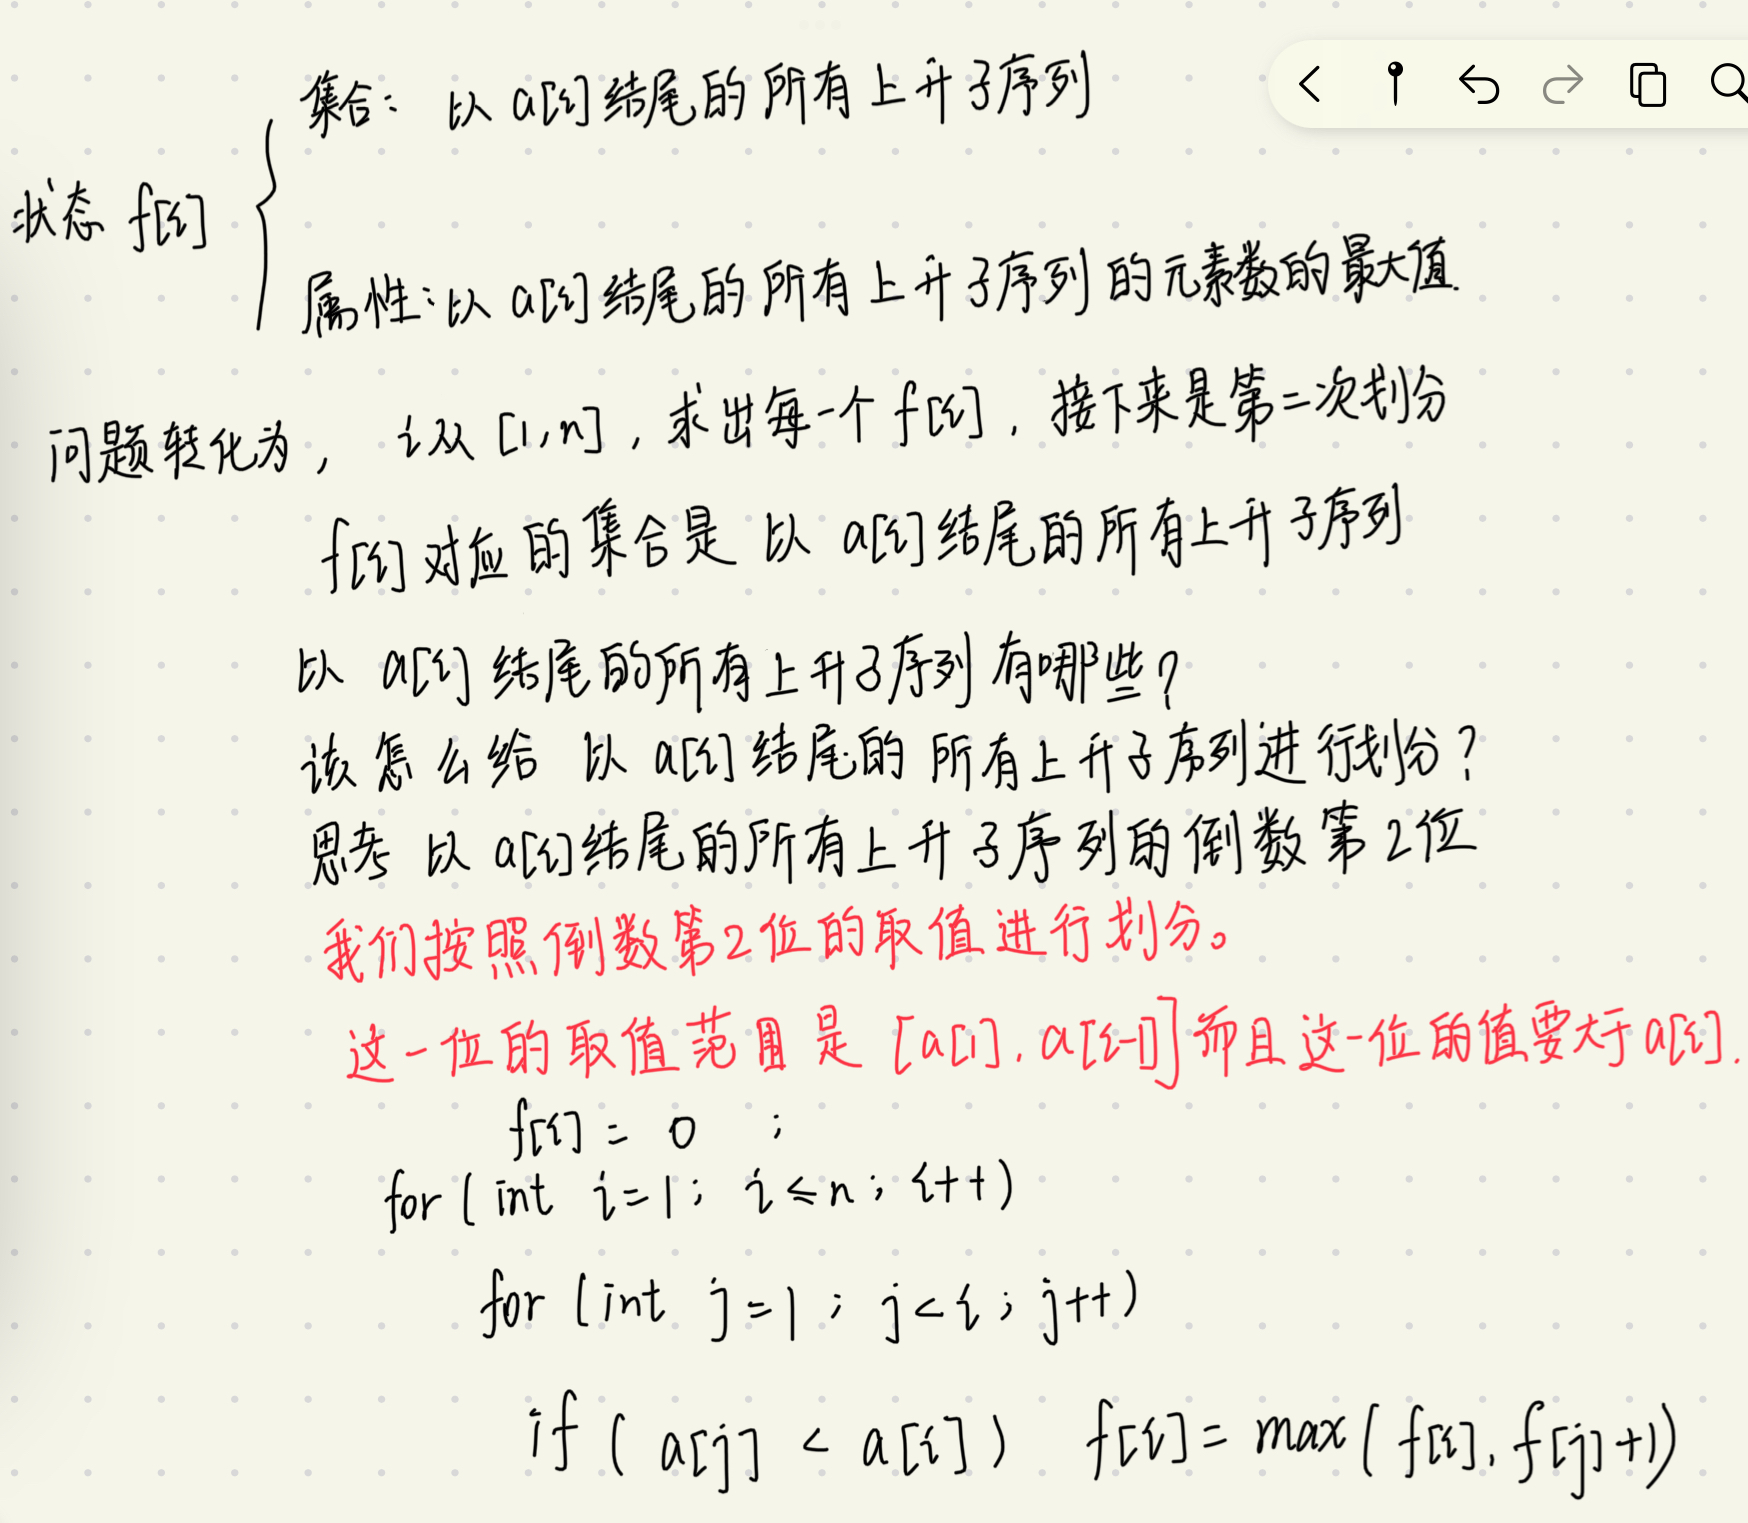 集合: 以 a[i] 结尾的所有上升子序列
状态 f[i]
属性: 以 a[i] 结尾的所有上升子序列的元素数的最大值.
问题转化为, i从 [1,n], 求出每一个 f[i], 接下来是第二次划分
f[i] 对应的集合是 以 a[i] 结尾的所有上升子序列
以 a[i] 结尾的所有上升子序列有哪些?
该怎么给 以 a[i] 结尾的所有上升子序列进行划分?
思考 以 a[i] 结尾的所有上升子序列的倒数第2位
我们按照倒数第2位的取值进行划分。
这一位的取值范围是 [a[1], a[i-1]] 而且这一位的值要大于 a[i].
f[i] = 0 ;
for ( int i=1; i≤n; i++)
for (int j=1; j<i; j++)
if ( a[j] < a[i] ) f[i] = max( f[i], f[j]+1)